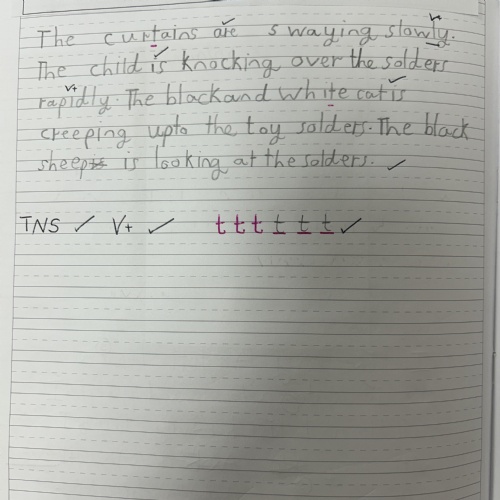 The curtains are swaying slowly.
The child is knocking over the solders
V+
rapidly. The black and white cat is
creeping upto the toy solders. The black
sheep is looking at the solders. ✓
TNS ✓ V+ ✓ t t t t t t ✓